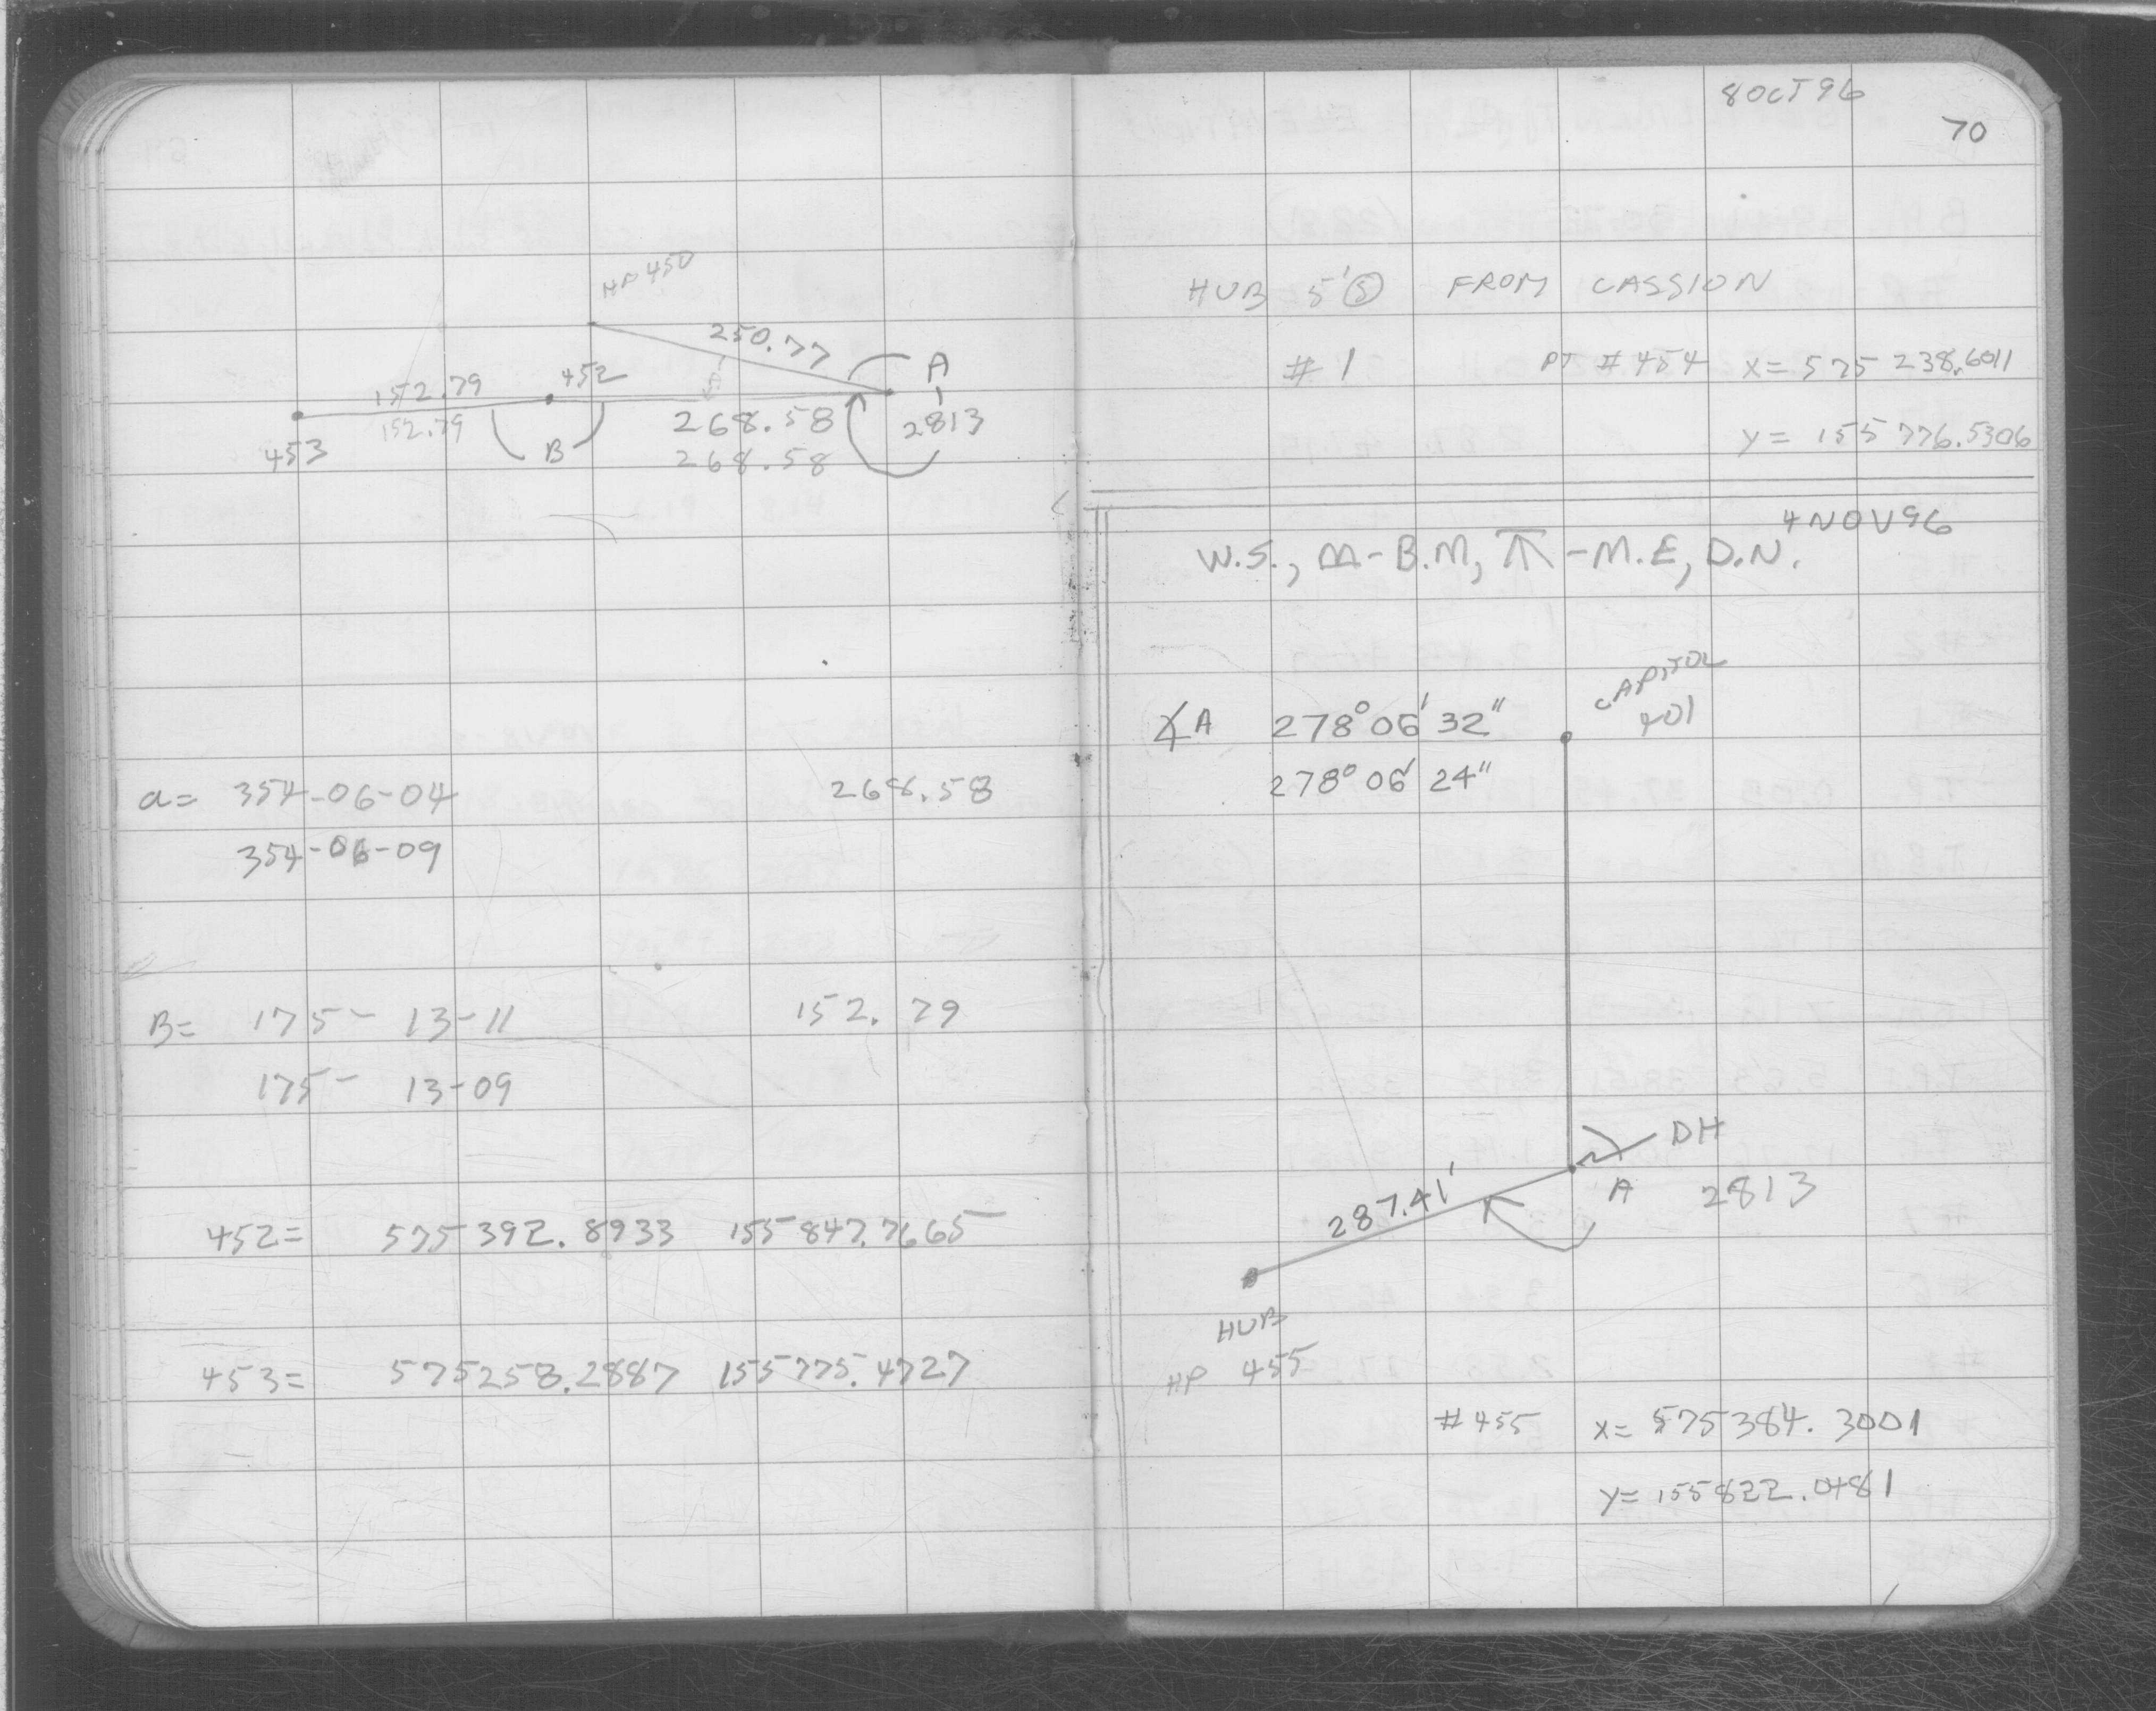 HP 450
250.77
A
152.79
452
152.79
268.58
2813
453
B
268.58
a= 354-06-04 268.58
354-06-09
B= 175- 13-11 152.79
175- 13-09
452= 575392.8933 155847.7665
453= 575258.2887 155775.4727
8 OCT 96
70
HUB 5' Ⓢ FROM CASSION
#1 PT #454 X= 575 238.6011
Y= 155 776.5306
4 NOV 96
W.S., M-B.M, ⊼-M.E, D.N.
CAPITOL
401
∡A 278° 06' 32"
278° 06' 24"
DH
A 2813
287.41'
HUB
HP 455
#455 X= 575384.3001
Y= 155822.0481